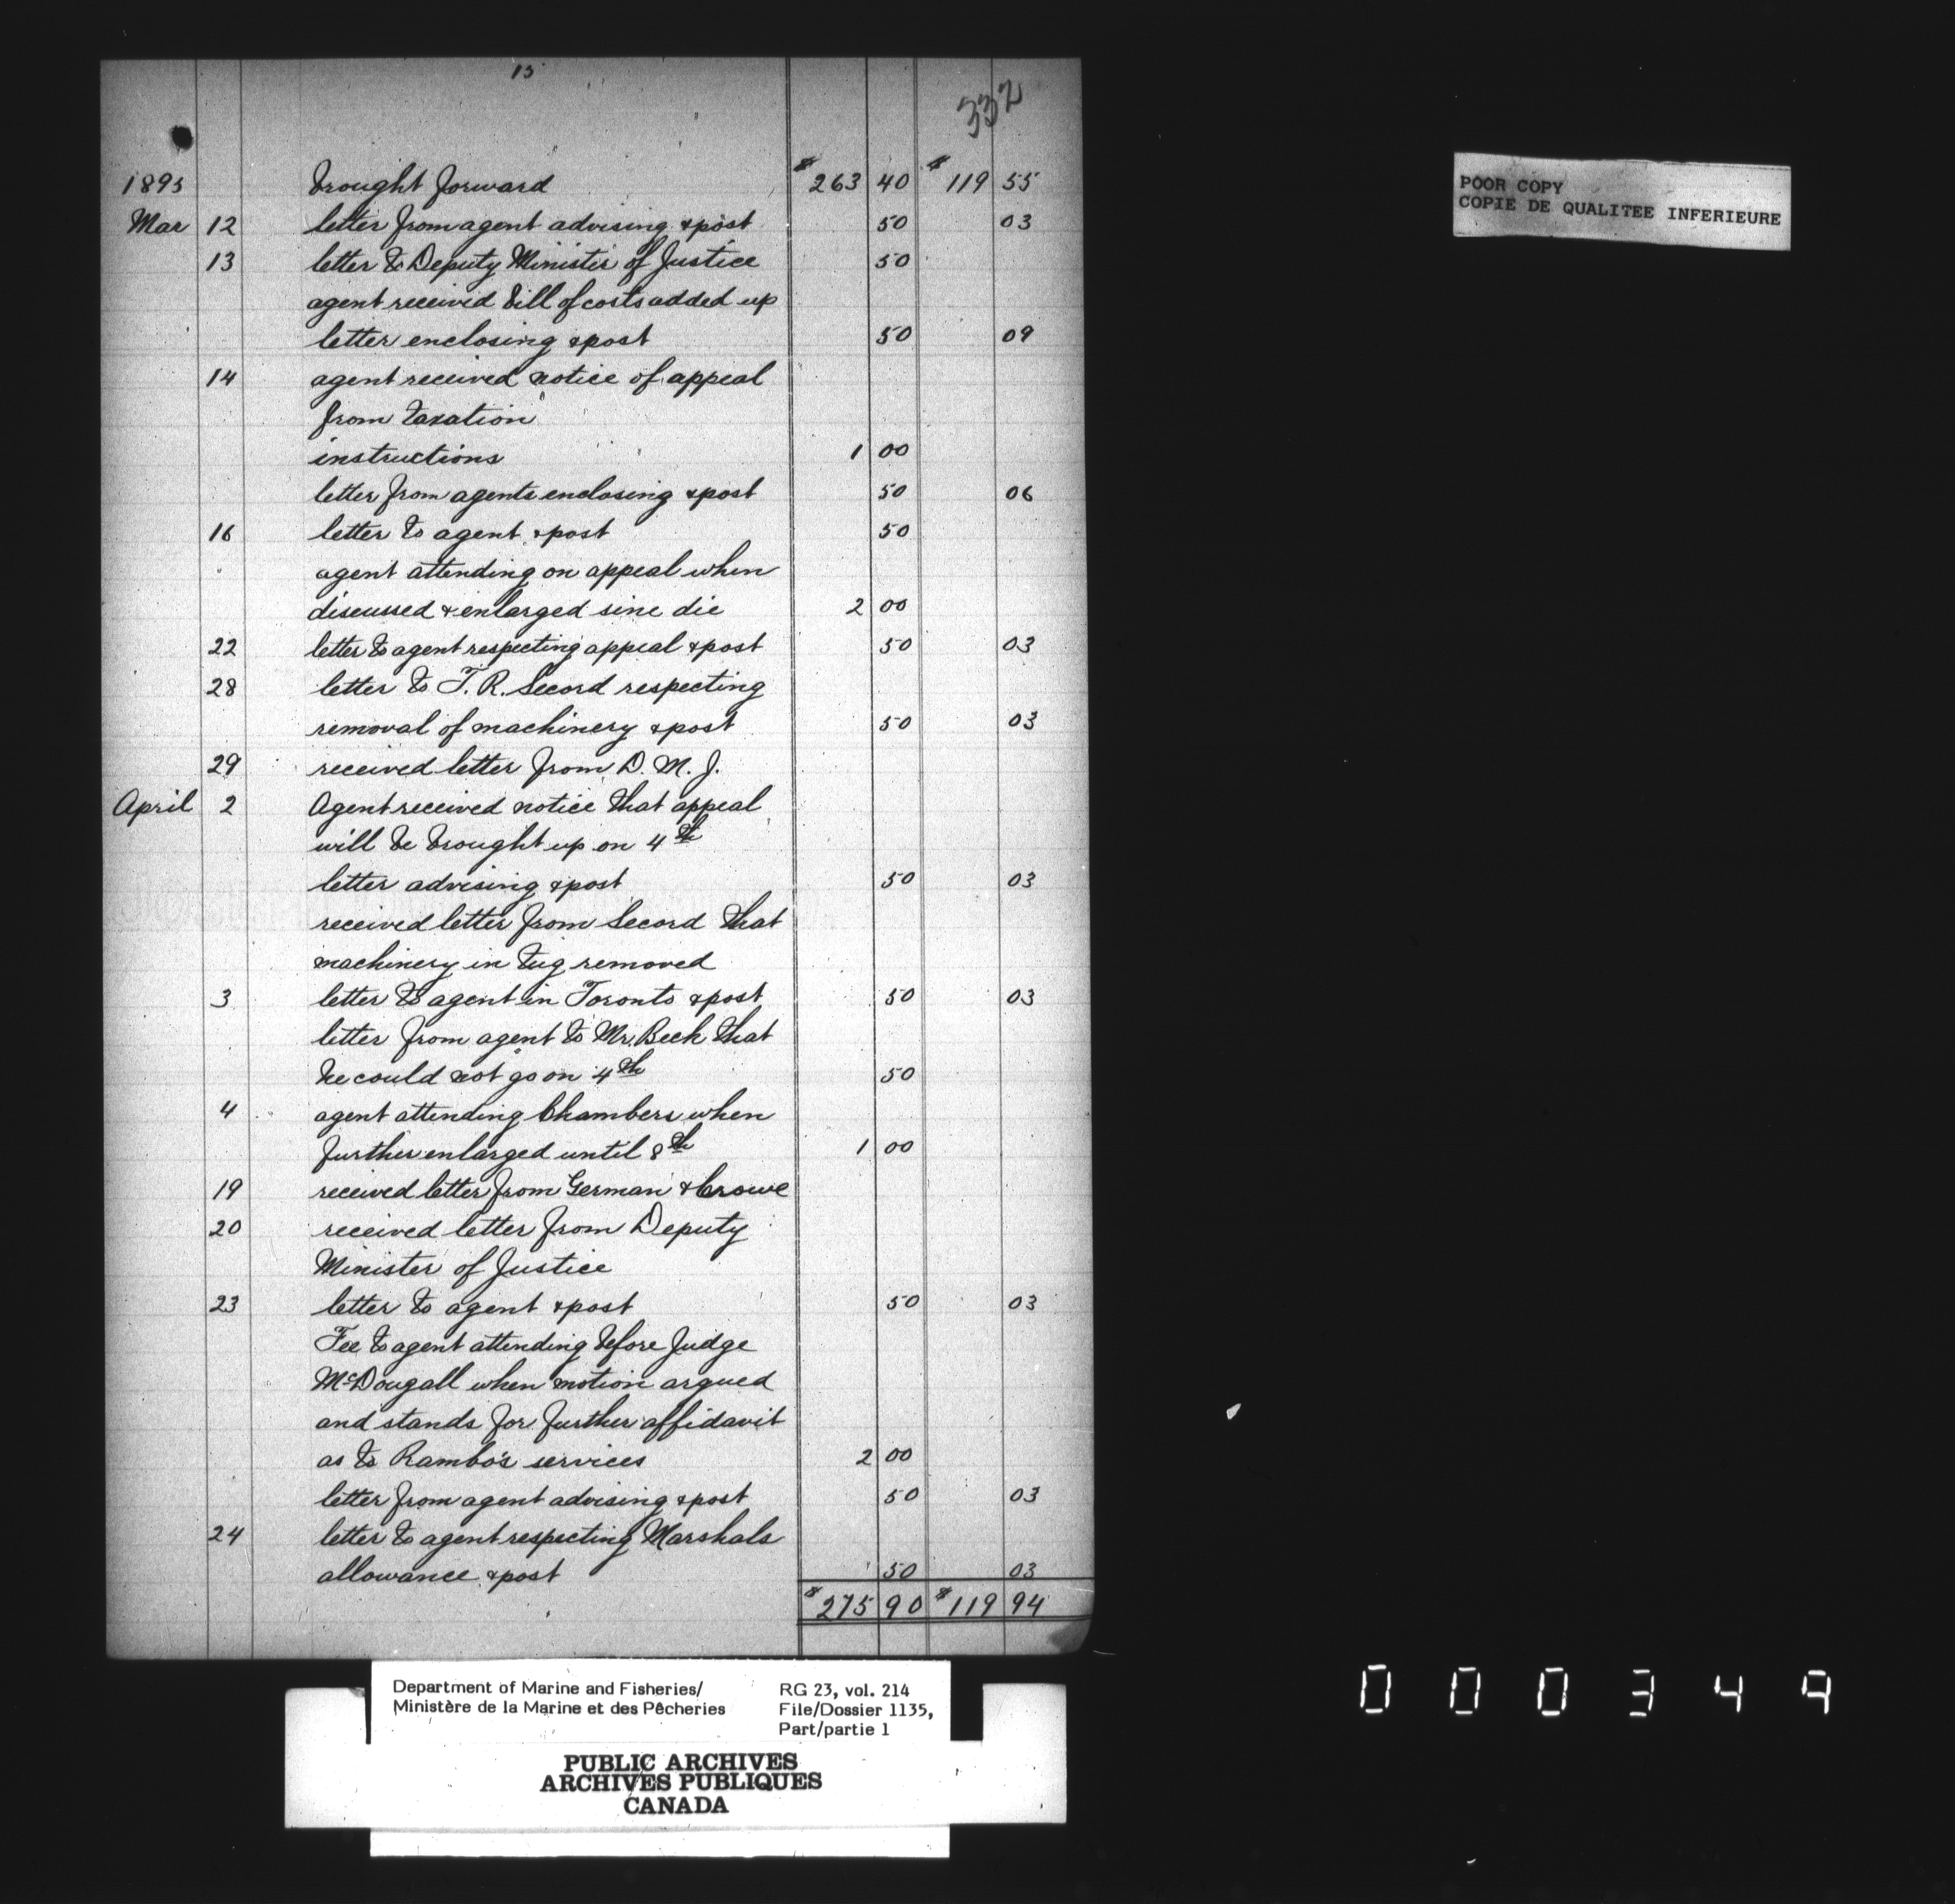 13
332
1895 brought forward $263 40 $119 55
Mar 12 letter from agent advising & post 50 03
13 letter to Deputy Minister of Justice 50
agent received bill of costs added up
letter enclosing & post 50 09
14 agent received notice of appeal
from taxation
instructions 1 00
letter from agents enclosing & post 50 06
16 letter to agent & post 50
agent attending on appeal when
discussed & enlarged sine die 2 00
22 letter to agent respecting appeal & post 50 03
28 letter to T. R. Secord respecting
removal of machinery & post 50 03
29 received letter from D. M. J.
April 2 Agent received notice that appeal
will be brought up on 4th
letter advising & post 50 03
received letter from Secord that
machinery in tug removed
3 letter to agent in Toronto & post 50 03
letter from agent to Mr. Beck that
he could not go on 4th 50
4 agent attending Chambers when
further enlarged until 8th 1 00
19 received letter from German & Crowe
20 received letter from Deputy
Minister of Justice
23 letter to agent & post 50 03
Fee to agent attending before Judge
McDougall when motion argued
and stands for further affidavit
as to Rambo's services 2 00
letter from agent advising & post 50 03
24 letter to agent respecting Marshals
allowance & post 50 03
$275 90 $119 94
POOR COPY
COPIE DE QUALITEE INFERIEURE
Department of Marine and Fisheries/
Ministère de la Marine et des Pêcheries
RG 23, vol. 214
File/Dossier 1135,
Part/partie 1
PUBLIC ARCHIVES
ARCHIVES PUBLIQUES
CANADA
000349